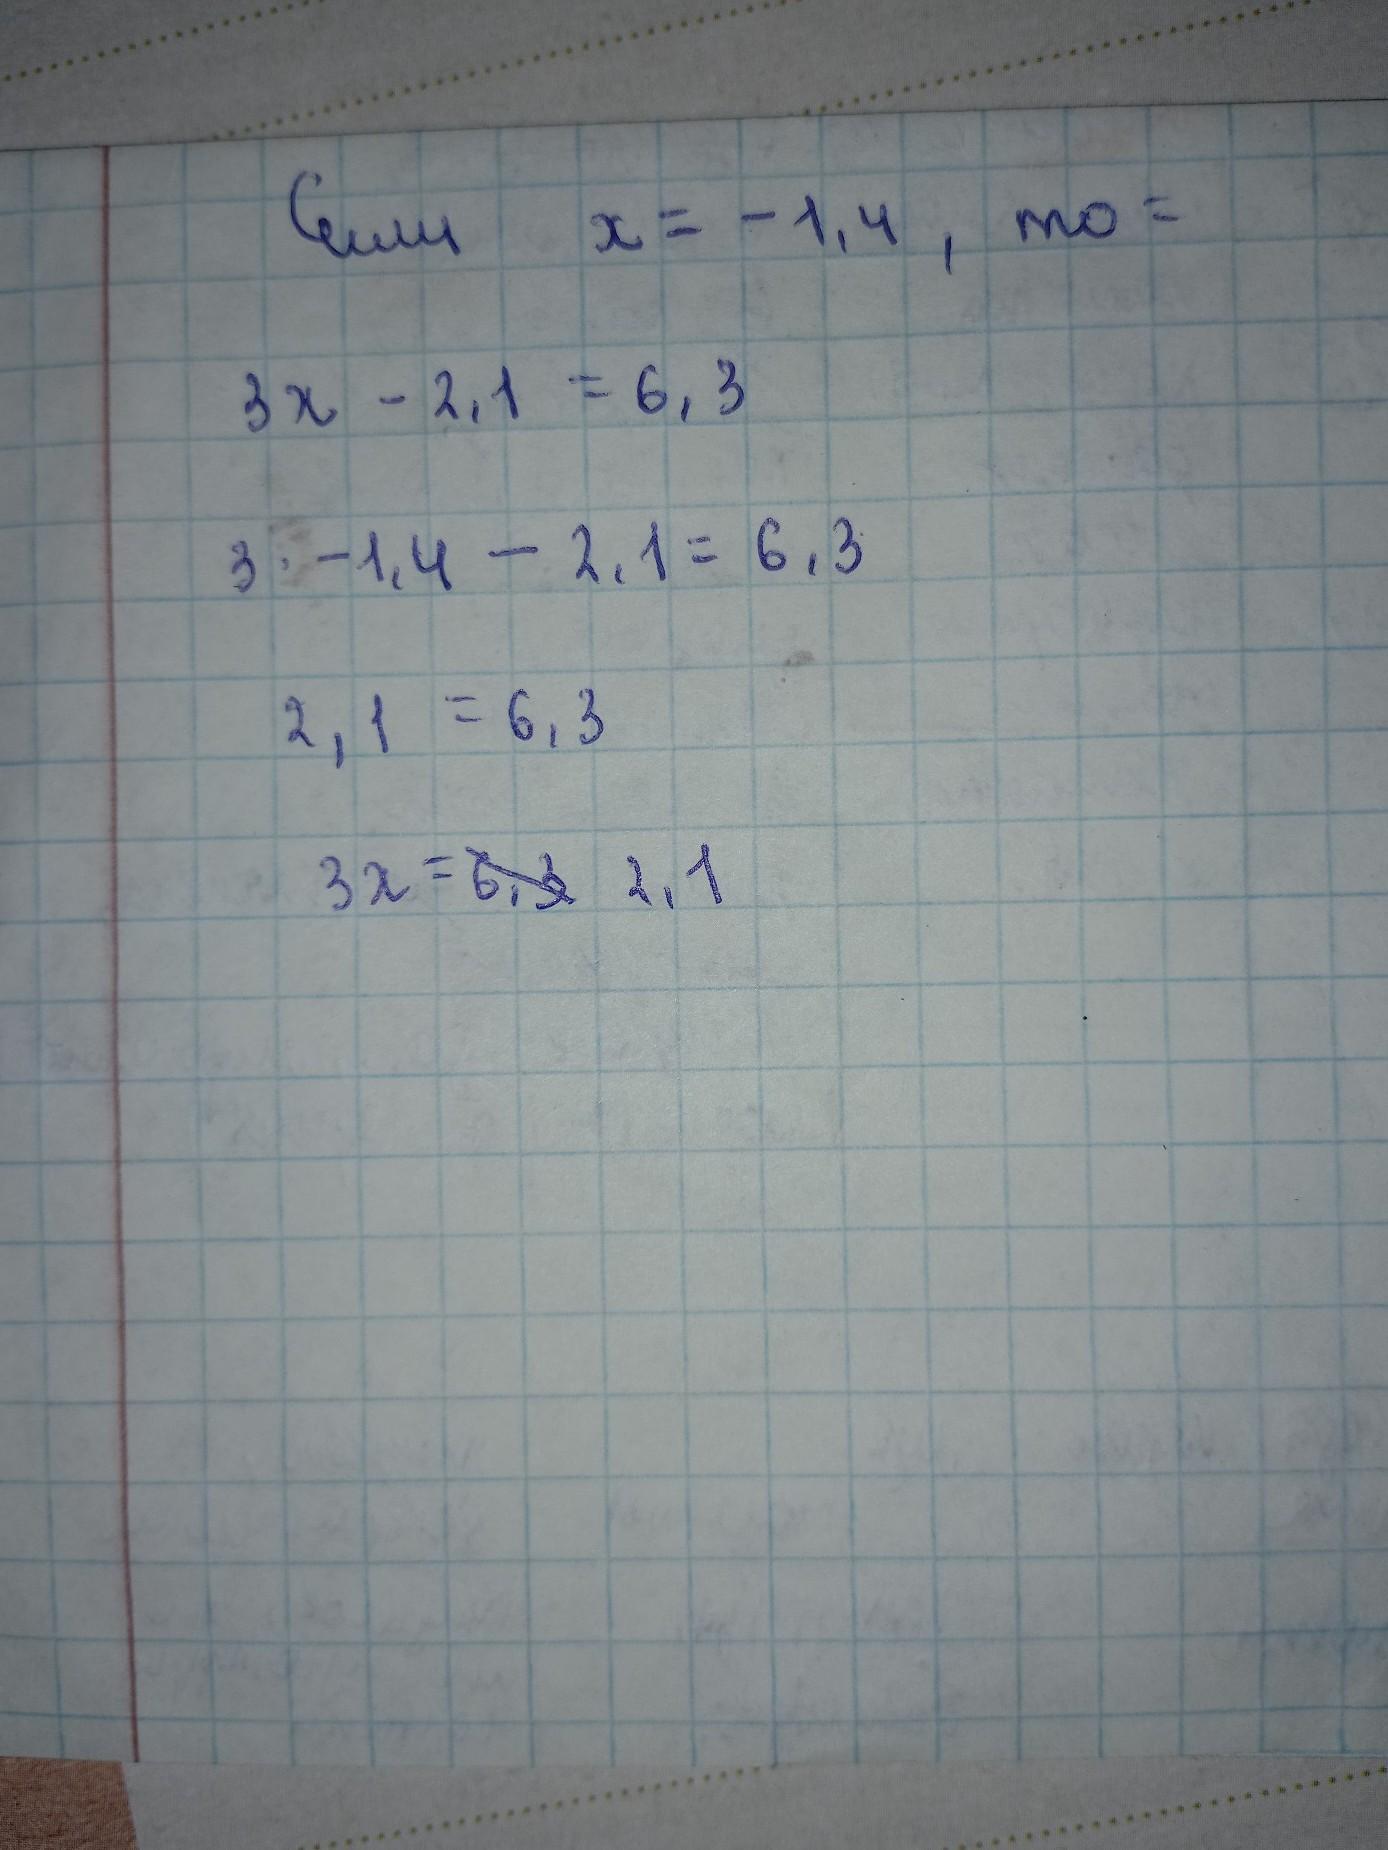 Если x = -1,4, то =
3x - 2,1 = 6,3
3 · -1,4 - 2,1 = 6,3
2,1 = 6,3
3x = 6,3 2,1